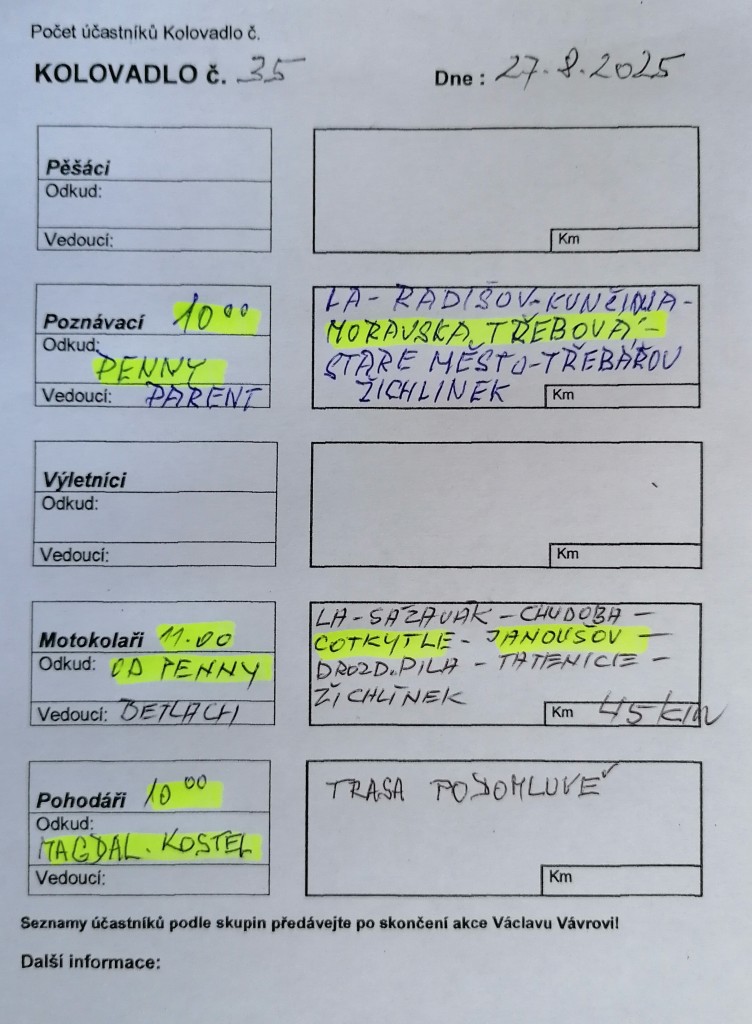 Počet účastníků Kolovadlo č.
KOLOVADLO č. 35 Dne : 27.8.2025
Pěšáci
Odkud:
Vedoucí:
Km
Poznávací 10 00
Odkud:
PENNY
Vedoucí: PARENT
LA - RADIŠOV - KUNČINA -
MORAVSKA TŘEBOVÁ -
STARE MĚSTO - TŘEBAŘOV
ŽICHLINEK
Km
Výletníci
Odkud:
Vedoucí:
Km
Motokolaři 11.00
Odkud: OD PENNY
Vedoucí: BETLACH
LA - SÁZAVAK - CHUDOBA -
COTKYTLE - JANOUŠOV -
DROZD. PILA - TATENICIE -
ŽICHLÍNEK
Km 45 km
Pohodáři 10 00
Odkud:
MAGDAL. KOSTEL
Vedoucí:
TRASA PO DOMLUVĚ
Km
Seznamy účastníků podle skupin předávejte po skončení akce Václavu Vávrovi!
Další informace: